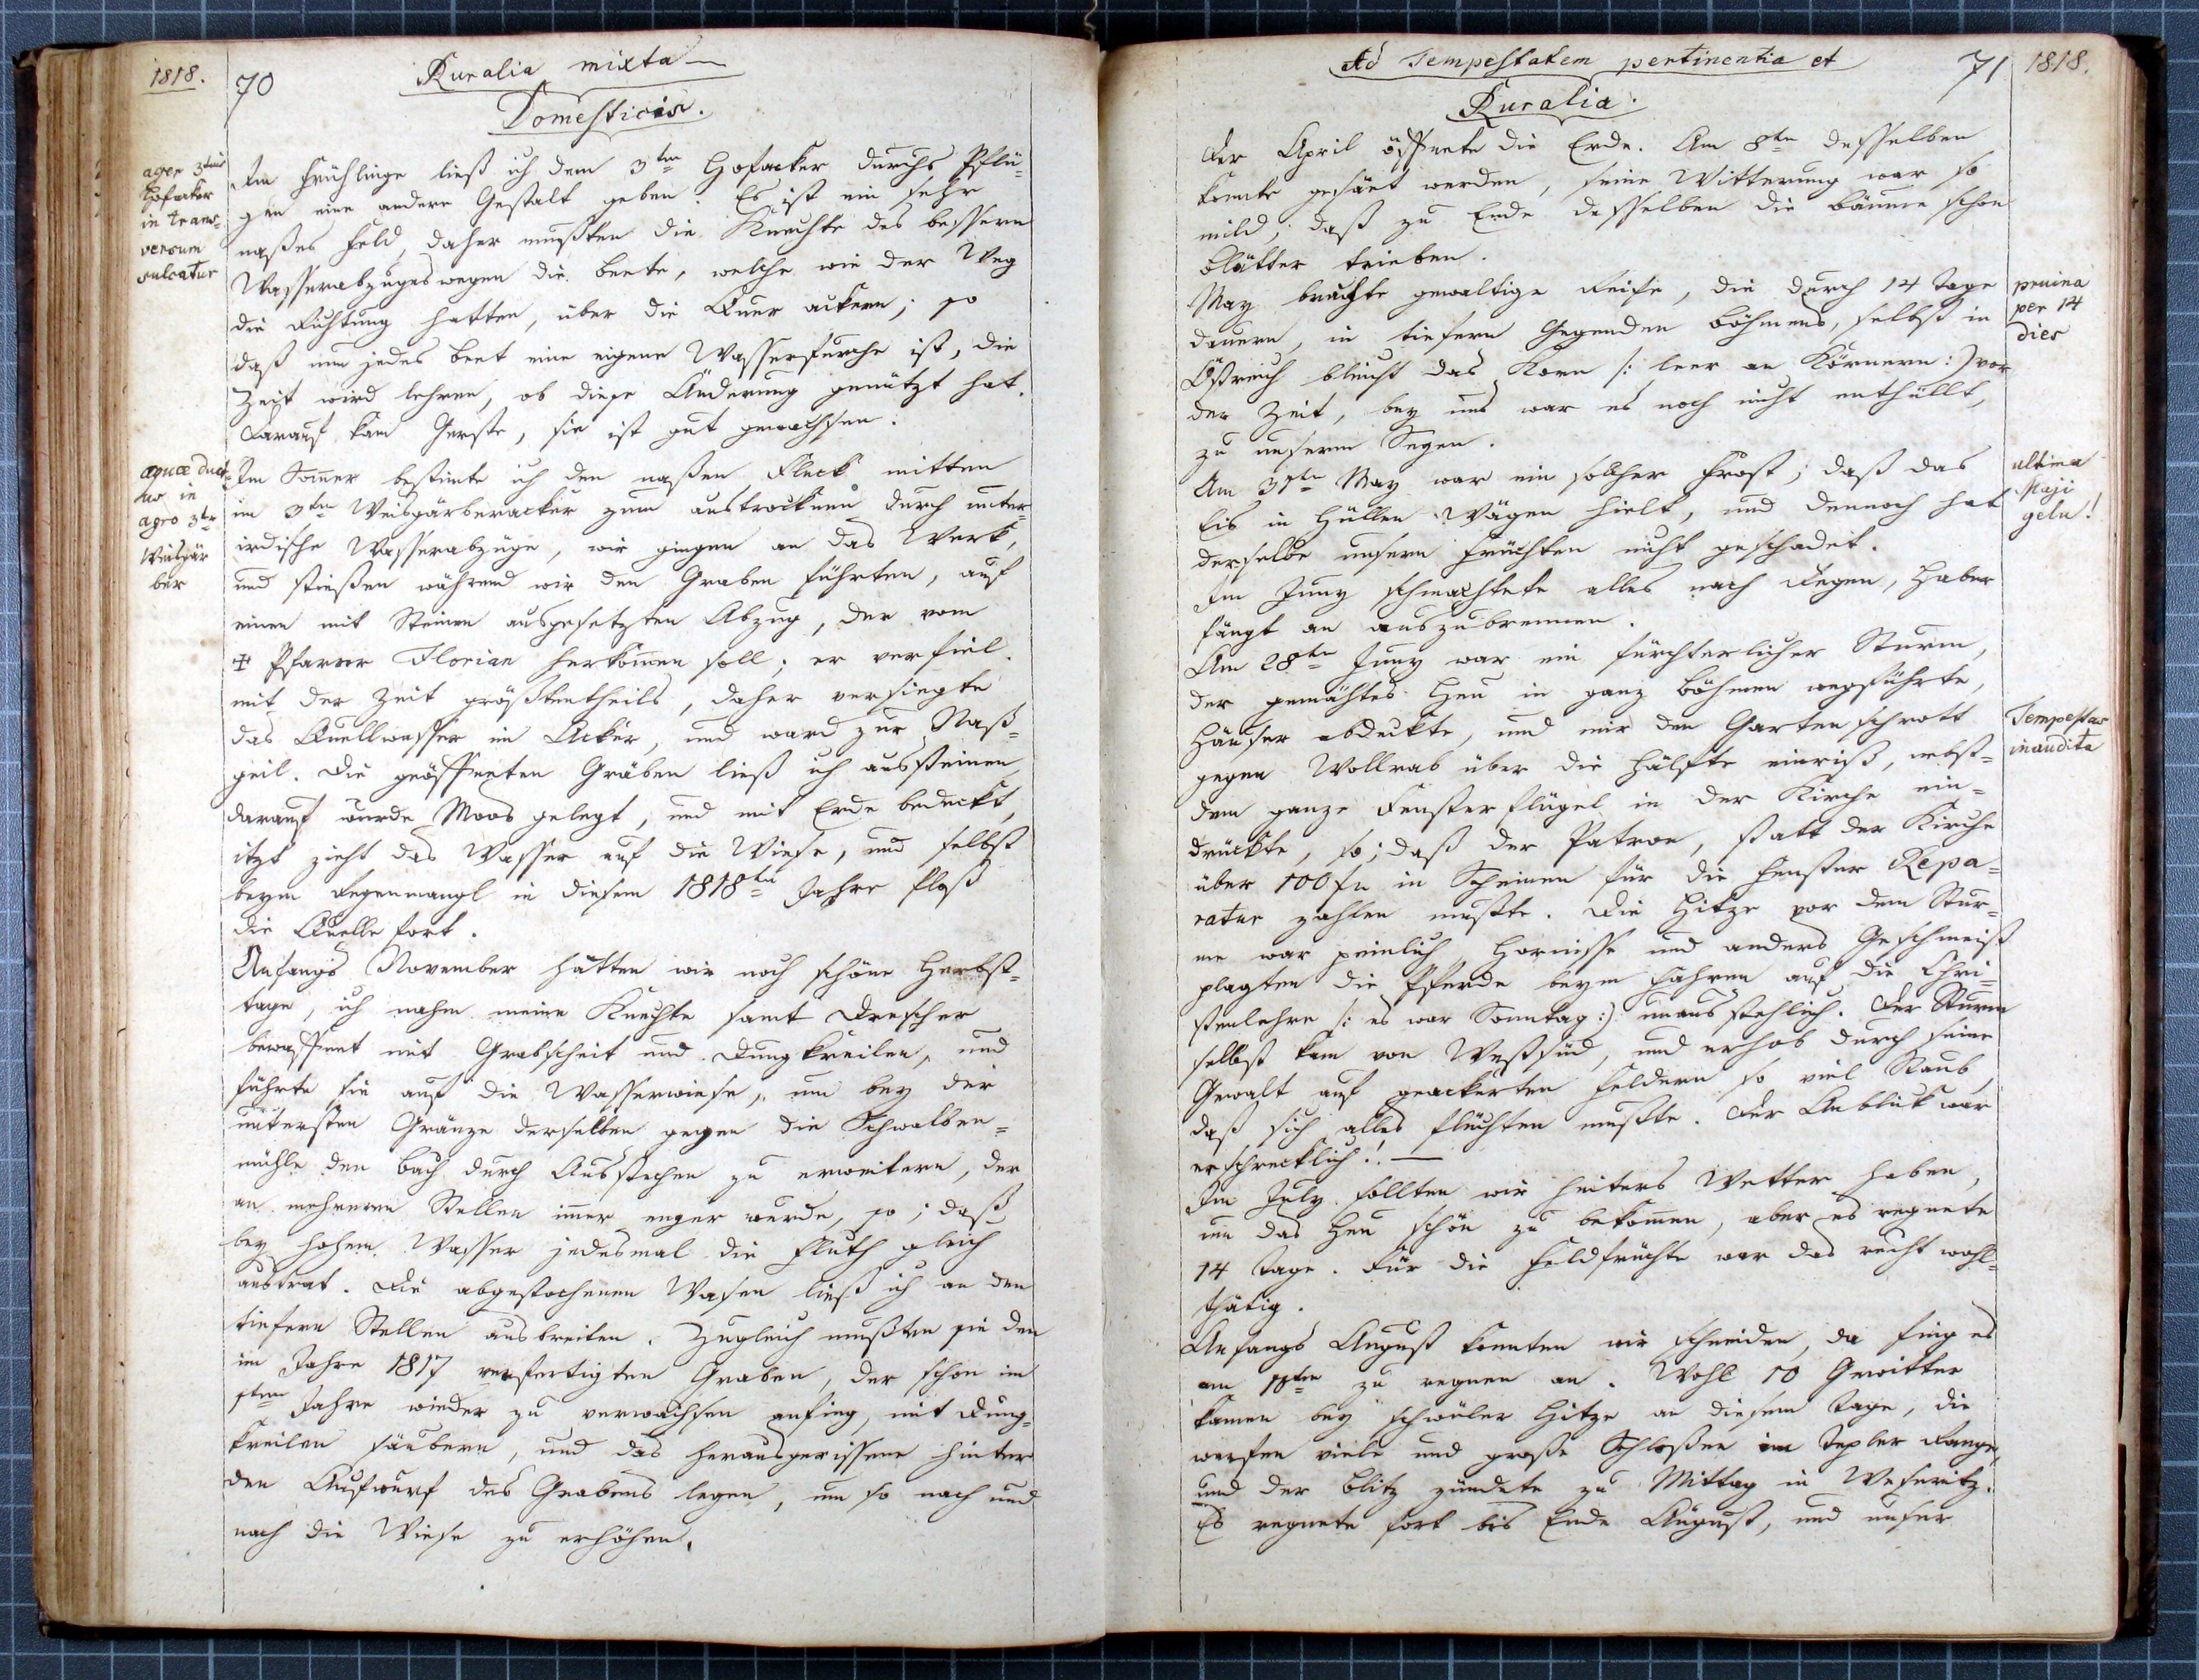 1818.
70
Ruralia mixta
Domesticis.
ager 3tius
Hofacker
in trans-
versum
sulcatur
Im Frühlinge ließ ich dem 3ten Hofacker durchs Pflü-
gen eine andere Gestalt geben. Es ist ein sehr
naßes Feld, daher mußten die Knechte des bessern
Wasserabzuges wegen die Beete, welche wie der Weg
die Richtung hatten, über die Quer ackern; so
daß nun jedes Beet eine eigene Wasserfurche ist, die
Zeit wird lehren, ob diese Änderung genützt hat.
Darauf kam Gerste, sie ist gut gewachsen.
aquæ duct-
us in
agro 3tio
Weisgär
ber
Im Sommer bestimte ich den naßen Fleck mitten
im 3ten Weisgärberacker zum austrocknen durch unter-
irdische Wasserabzüge, wir giengen an das Werk,
und stießen während wir den Graben führten, auf
einen mit Steinen ausgesetzten Abzug, der vom
✝ Pfarrer Florian herkommen soll; er verfiel
mit der Zeit größtentheils, daher versiegte
das Quellwasser im Acker, und ward zur Naß-
geil. Die geöffneten Gräben ließ ich aussteinen,
darauf wurde Moos gelegt, und mit Erde bedeckt,
itzt zieht das Wasser auf die Wiese, und selbst
beym Regenmangl in diesem 1818ten Jahre floß
die Quelle fort.
Anfangs November hatten wir noch schöne Herbst-
tage, ich nahm meine Knechte samt Drescher
bewaffnet mit Grabscheit und Dungkreilen, und
führte sie auf die Wasserwiese, um bey der
untersten Gränze derselben gegen die Schwalben-
mühle den Bach durch Ausstechen zu erweitern, der
an mehreren Stellen immer enger wurde, so; daß
bey hohem Wasser jedesmal die Fluth gleich
austrat. Die abgestochenen Wasen ließ ich an den
tiefern Stellen ausbreiten. Zugleich mußten sie den
im Jahre 1817 verfertigten Graben, der schon im
1ten Jahre wieder zu verwachsen anfing, mit Dung-
kreilen säubern, und das herausgerissene hinter
den Aufwurf des Grabens legen, um so nach und
nach die Wiese zu erhöhen.
Ad Tempestatem pertinentia et
Ruralia.
71
1818.
Der April öffnete die Erde. Am 8ten desselben
konnte gesäet werden, seine Witterung war so
mild; daß zu Ende desselben die Bäume schon
Blätter trieben.
May brachte gewaltige Reife, die durch 14 Tage
dauern, in tiefern Gegenden Böhmens, selbst in
Östreich bleicht das Korn /: leer an Körnern :/ vor
der Zeit, bey uns war es noch nicht enthüllt,
zu unserm Segen.
pruina
per 14
dies
Am 31ten May war ein solcher Frost; daß das
Eis in Hüllen Wägen hielt, und dennoch hat
derselbe unsern Früchten nicht geschadet.
ultima
Maji
gelu!
Im Juny schmachtete alles nach Regen, Haber
fängt an auszubrennen.
Am 28ten Juny war ein fürchterlicher Sturm,
der gemähtes Heu in ganz Böhmen wegführte,
Häuser abdeckte, und mir den Gartenschrott
gegen Wollrab über die Hälfte einriß, nebst-
dem ganze Fensterflügel in der Kirche ein-
drückte, so; daß der Patron, statt der Kirche
über 100 fn in Scheinen für die Fenster Repa-
ratur zahlen mußte. Die Hitze vor dem Stur-
me war peinlich, Hornisse und anders Geschmeiß
plagten die Pferde beym Fahren auf die Chri-
stenlehre /: es war Sonntag :/ unausstehlich. Der Sturm
selbst kam von Westsüd, und erhob durch seine
Gewalt auf geackerten Feldern so viel Staub,
daß sich alles flüchten mußte. Der Anblick war
erschrecklich! —
Tempestas
inaudita
Im July sollten wir heiters Wetter haben,
um das Heu schön zu bekommen, aber es regnete
14 Tage. Für die Feldfrüchte war das recht wohl-
thätig.
Anfangs August konnten wir schneiden, da fing es
am 10ten zu regnen an. Wohl 10 Gewitter
kamen bey schwüler Hitze an diesem Tage, die
warfen viele und große Schloßen im Tepler Range,
und der Blitz zündete zu Mittag in Weseritz.
Es regnete fort bis Ende August, und unser